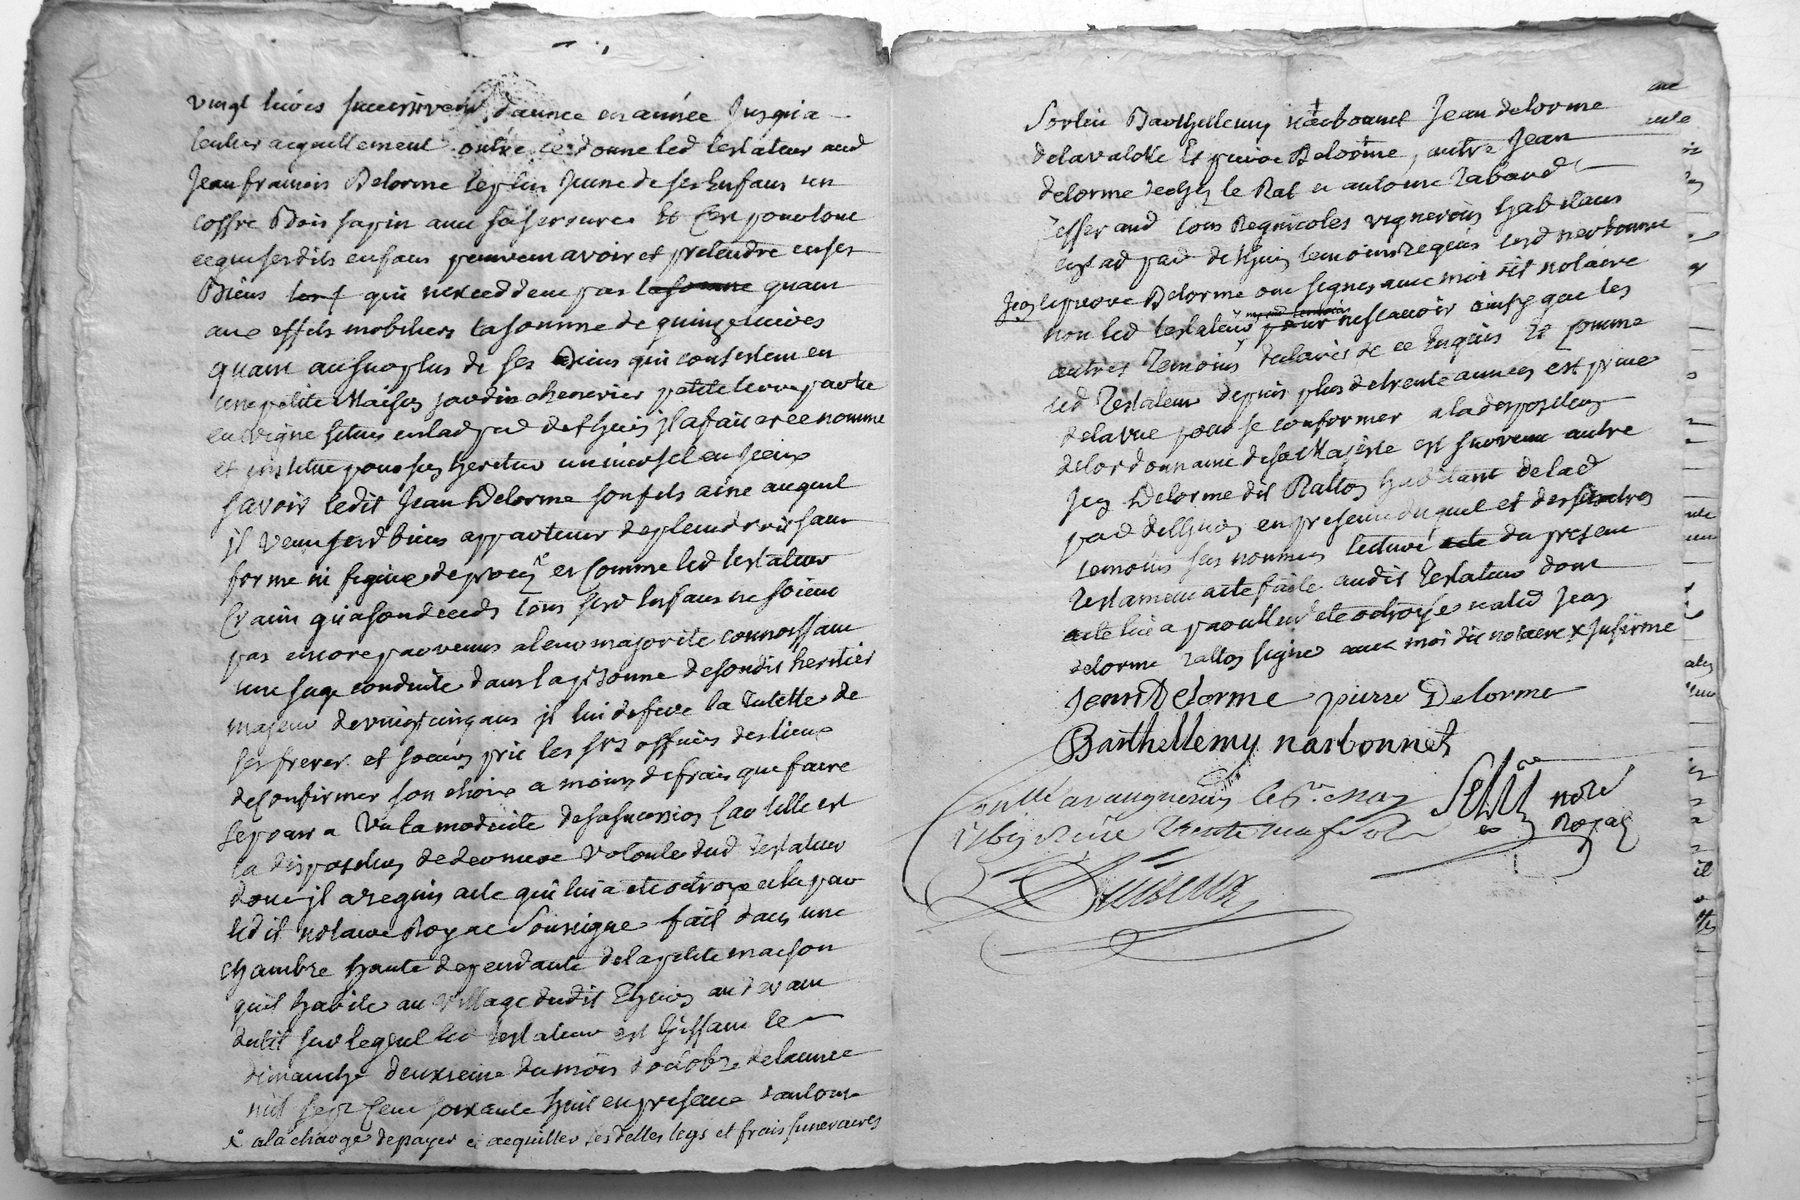 vingt livres successivem.t dannee en année Jusqu'a
lentier acquittement outre ce donne led testateur aud
Jean francois Delorme le plus Jeune de ses Enfans un
coffre Bois sapin avec sa serrure Et C'est pour tout
ce que sesdits enfans peuvent avoir et pretendre en ses
Biens qui nexceddent pas la somme quant
aux effets mobiliers la somme de quinze livres
quant au surplus de ses Biens qui consistent en
une petite Maison jardin chenevier petite terre partie
en vigne situés en lad par d de Thuis jl a fait cree nomme
et institue pour son heritier universel en Jceux
savoir ledit Jean Delorme son fils ainé auquel
jl veut sesd biens appartenir de plein droit sans
forme ni figure de proces et Comme led testateur
Craint qu'a son deceds tous sesd Enfans ne soient
pas encore parvenus a leur majorite connoissant
une sage conduite dans la p.rsonne de sondit heritier
majeur de vingt cinq ans jl lui defere la Tutelle de
ses freres et soeurs prie les srs officiers des lieux
de confirmer son choix a moins de frais que faire
se pourra Vu la modicité de sa succession Car telle est
la disposition de derniere volonté dud Testateur
dont jl a requis acte qui lui a eté octroyé et lu par
ledit notaire Royal Soussigné fait dans une
chambre haute dependante de la petite maison
qu'il habite au village dudit Thuis au devant
dulit sur lequel led testateur est Gissant le
dimanche deuxieme du mois d'octobre de lannee
mil sept Cent soixante huit en presence dantoine
a la charge de payer et acquitter ses dettes legs et frais funeraires
Barthellemy narbonnet Jean delorme
delavalotte Et pierre Delorme, autre Jean
delorme de chez le Rat et antoine Tabard
Tisserand tous Regnicoles vignerons habitans
enlad par d de Thuis temoins requis lesd narbonnet
Jean et pierre Delorme ont signes avec moi dit notaire
non led testateur pour ne scavoir ainsy que les
autres Temoins declarés de ce Enquis Et Comme
led Testateur depuis plus de trente années est privé
de la vue pour se conformer a la disposition
de lordonnance de sa Majesté est survenu autre
Jean Delorme dit Rallon habitant de lad
par d de Thuis en presence duquel et des autres
temoins sus nommes lecture acte du present
Testament a eté faite audit Testateur dont
acte lu a eté octroyé ealed Jean
delorme Rallon signé avec moi dit notaire
Jean Delorme pierre Delorme
Barthellemy narbonnet
not.re
Royal